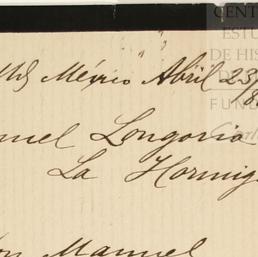 CENT
EST
DE HIS
México Abril 23
FUND
uel Longoria
La Hormig
Manuel